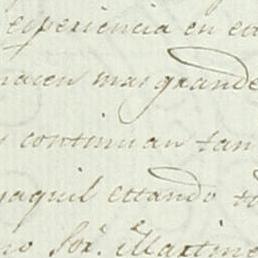 experiencia en
hacen mas grande
continuan tan
yaquil estando
Sor. Martine